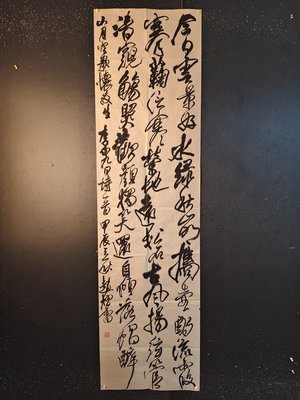 今日雲景好水綠秋山明攜壺酌流霞
搴菊泛寒榮地遠松石古風揚絃管
清窺觴照歡顏獨笑還自傾落帽醉
山月空歌懷友生 李白九日詩一首 甲辰